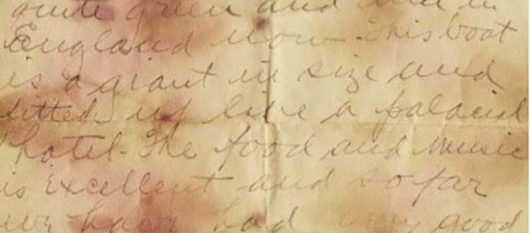 quite green and  in
England now. This boat
is a giant in size and
fitted up like a palacial
hotel. The food and music
is excellent and so far
we have had very good